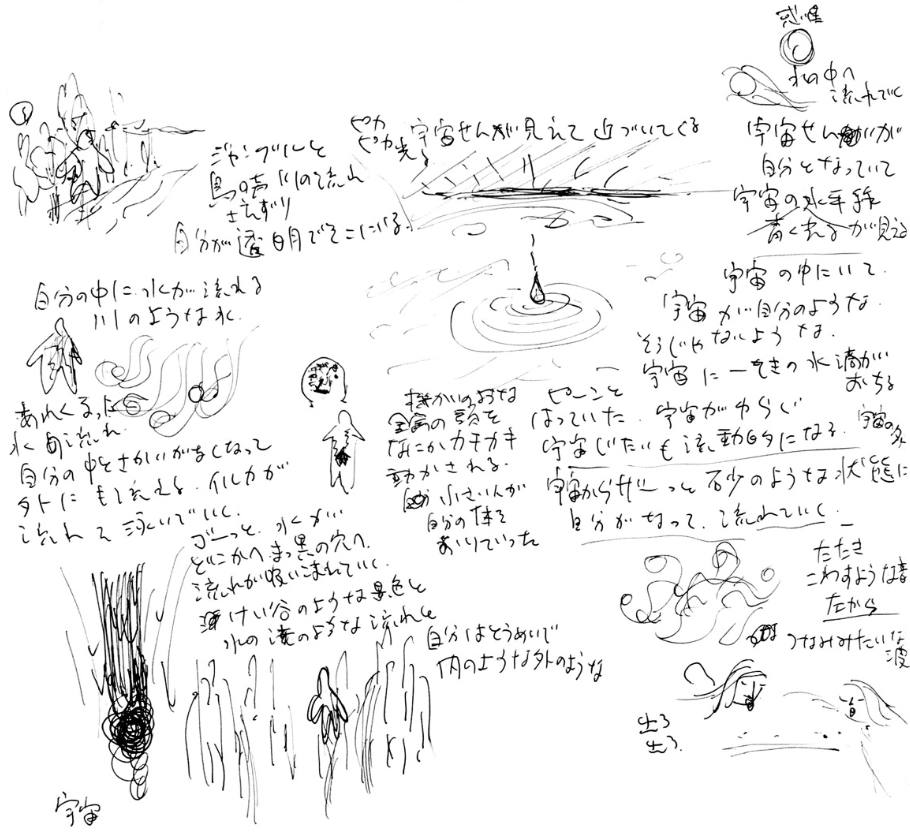 ジャングルと
鳥の声 川の流れ
さえずり
自分が透明でそこにいる。
ピカ
ピカ光る
宇宙せんが見えて 近づいてくる
惑星
水の中へ
流れていく
宇宙せんが
自分となっていて
宇宙の水
青く光るが見える
宇宙の中にいて
宇宙が自分のような
そうじゃないような
宇宙に一てきの水滴が
おちる
自分の中に水が流れる
川のような水
あれくるった
水の流れ
自分の中とさかいがなくなって
外にも流れる。イルカが
流れて泳いでいく。
ゴーッと 水が
どこかへ まっ黒の穴へ
流れが吸いこまれていく
けい谷のような景色と
水の滝のような流れと
宇宙
機かいのような
金属の頭を
なにかカチカチ
動かされる。
小さい人が
自分の体を
おりていった
ピーンと
はっていた 宇宙がゆらぐ
宇宙じたいも流動的になる。宇宙の外
宇宙からザーッと 砂のような状態に
自分がなって 流れていく
自分はとうめいで
内のような外のような
たたき
こわすような音
だから
つなみみたいな
波
出ろ
出ろ